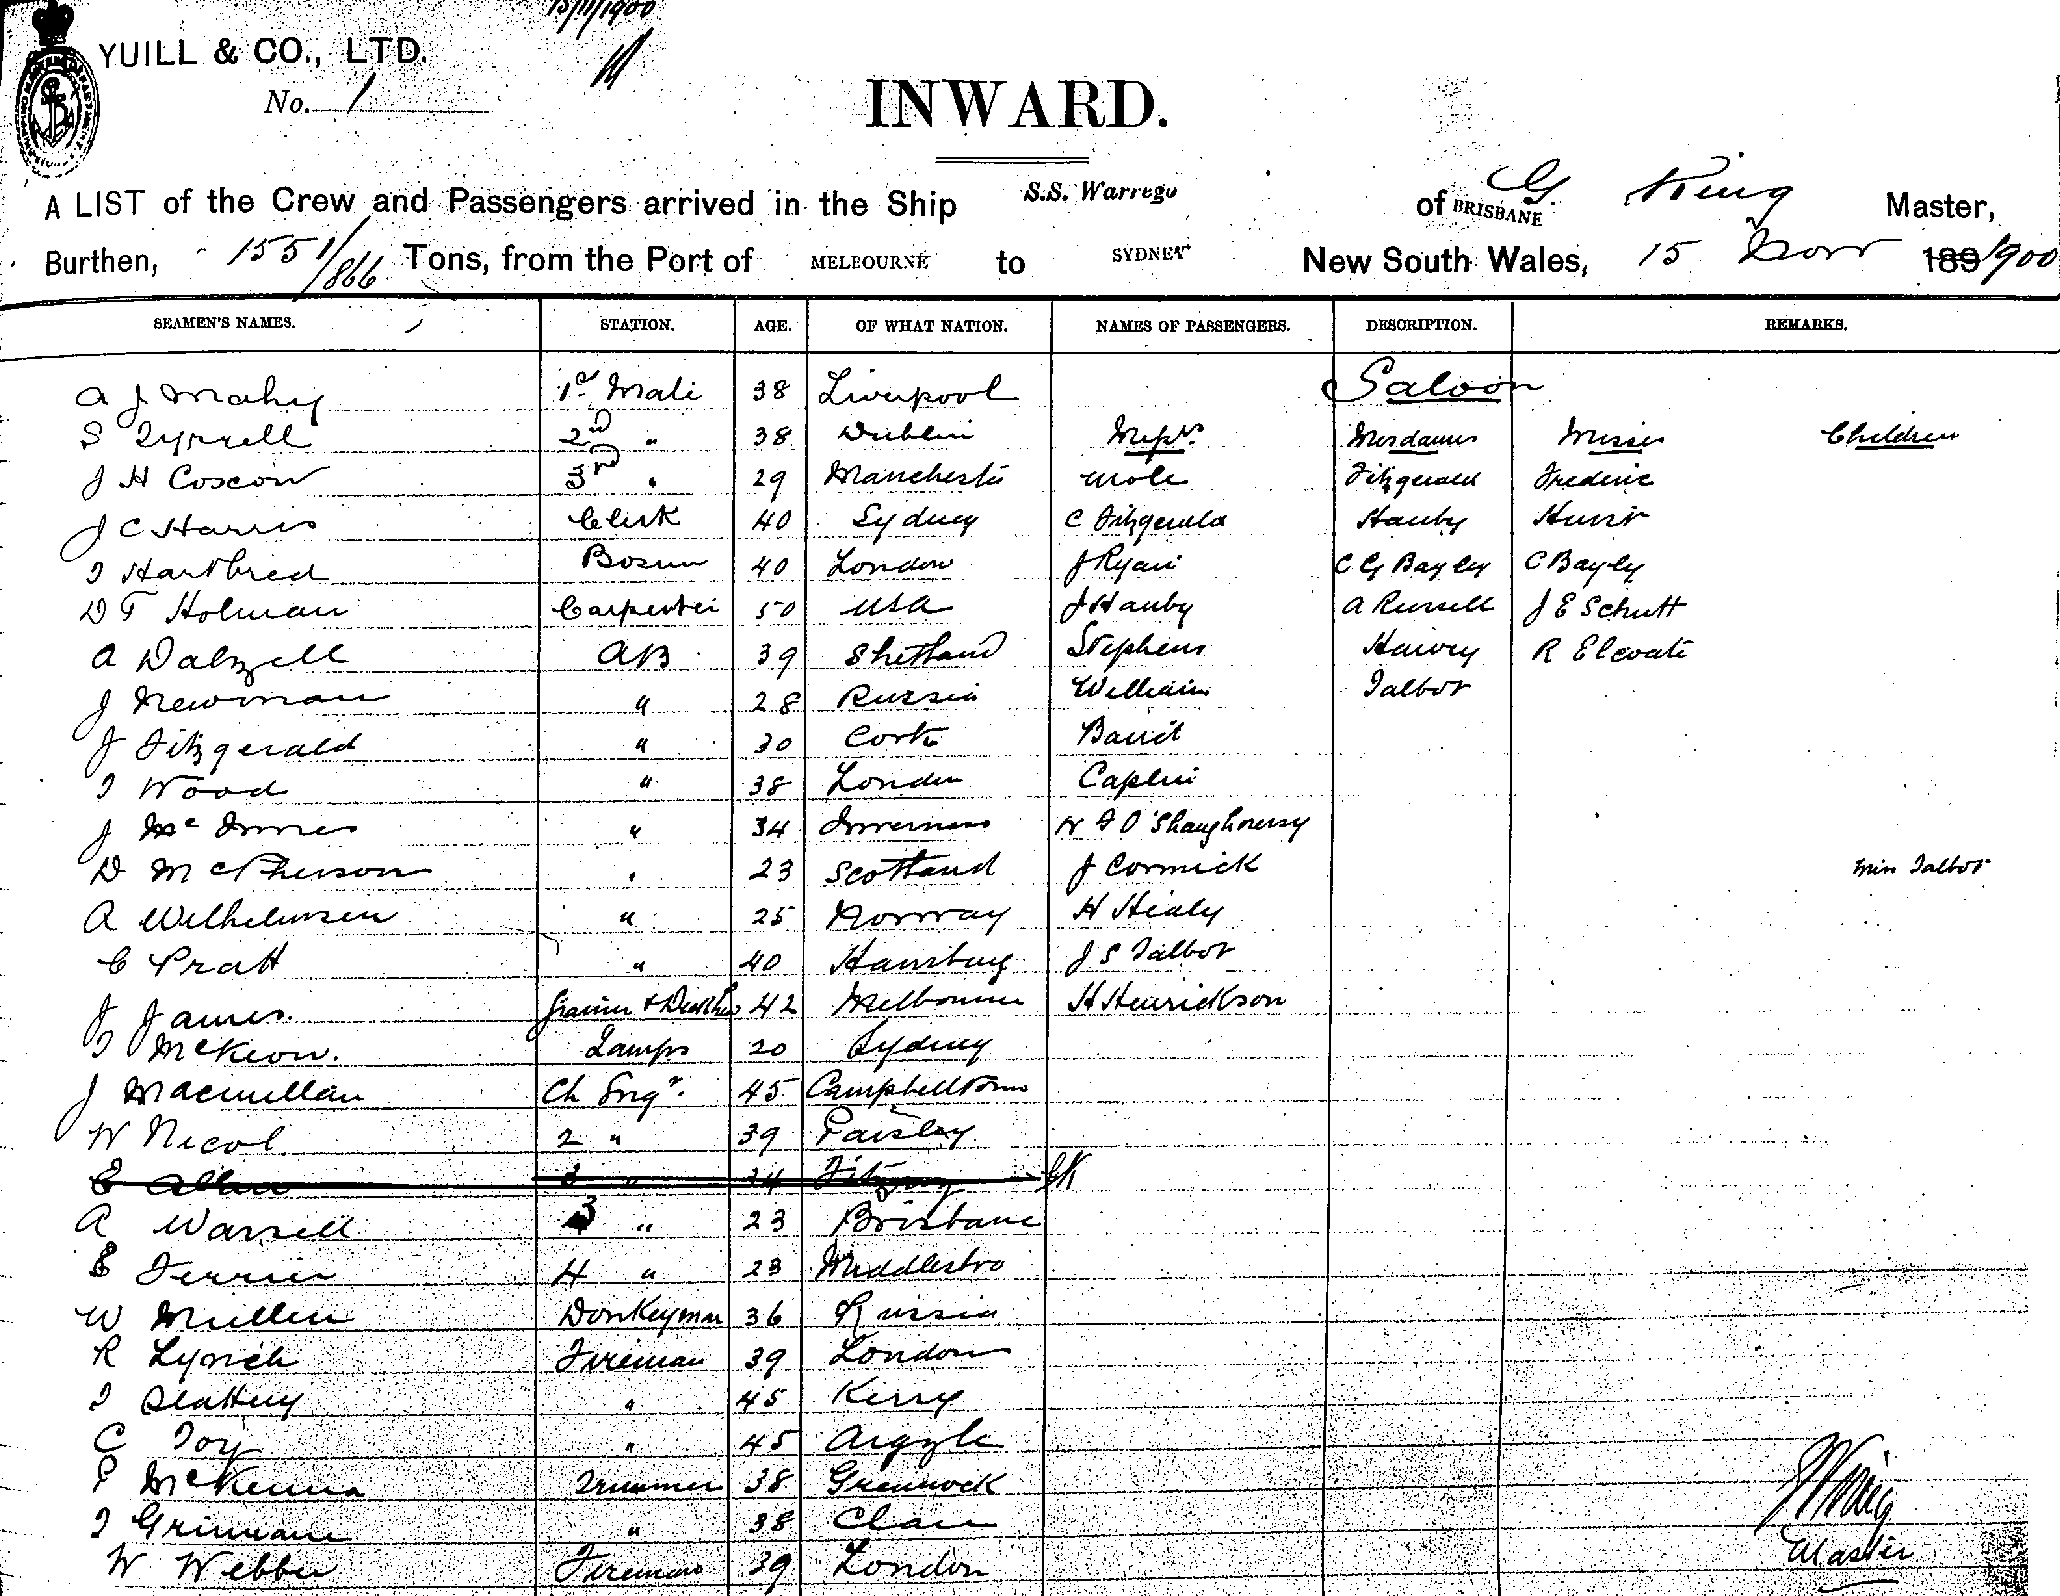 15/11/1900
YUILL & CO., LTD.
No. 1
INWARD.
A LIST of the Crew and Passengers arrived in the Ship S.S. Warrego of BRISBANE G. King Master,
Burthen, 1551/866 Tons, from the Port of MELBOURNE to SYDNEY New South Wales, 15 Novr 189 1900
SEAMEN'S NAMES. STATION. AGE. OF WHAT NATION. NAMES OF PASSENGERS. DESCRIPTION. REMARKS.
A J Mahy 1st Mate 38 Liverpool Saloon
S Tyrrell 2nd " 38 Dublin Messrs Mesdames Misses Children
J H Coscow 3rd " 29 Manchester Mole Fitzgerald Frederic
J C Harris Clerk 40 Sydney C Fitzgerald Hanby
T Hartbred Bosun 40 London J Ryan C G Bayley C Bayley
D F Holman Carpenter 50 USA J Hanby A Russell J E Schutt
A Dalzell AB 39 Shetland Stephens Harvey R Elevate
J Newman " 28 Russia William Talbot
J Fitzgerald " 30 Cork
T Wood " 38 London Caplin
J McInnes " 34 Inverness O'Shaughnessy
D McPherson " 23 Scotland J Cormick Miss Talbot
A Wilhelmsen " 25 Norway H Healy
C Pratt " 40 Hamburg J S Talbot
J James 42 Melbourne H Henrickson
T McKeon. Lamps 20 Sydney
J Macmillan Ch Engr. 45 Campbelltown
W Nicol 2 " 39 Paisley
E Allen 3 " 34 Fitzroy GK
A Warsell 3 " 23 Brisbane
E Ferrier 4 " 23 Middlesbro
W Mullen Donkeyman 36 Russia
R Lynch Fireman 39 London
T Slattery " 45 Kerry
C Toy " 45 Argyle
P McKenna Trimmer 38 Greenock
T Grinnane " 38 Clare
W Webber Fireman 39 London
G King
Master